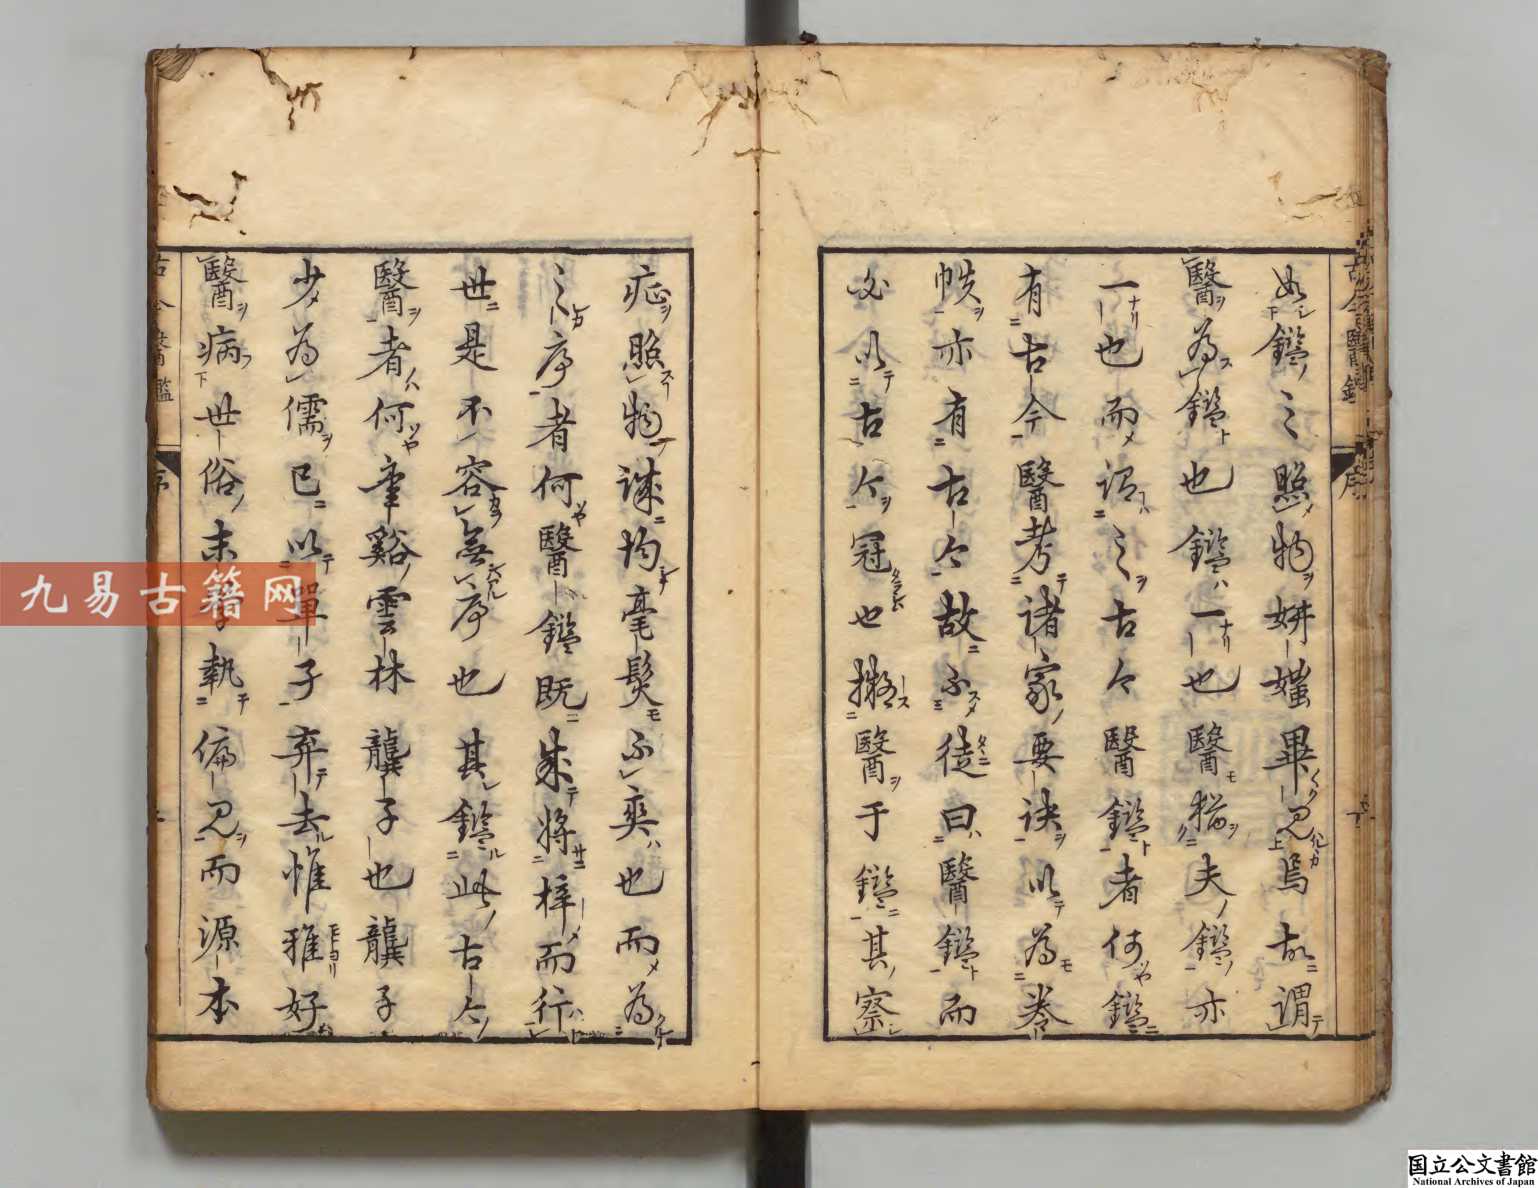 如鑑之照物妍媸畢見焉故謂
醫為鑑也鑑一也醫猶夫鑑亦
一也而謂之古今醫鑑者何鑑
有古今醫考諸家要訣以為卷
帙亦有古今故不徒曰醫鑑而
必以古今冠也擬醫于鑑其察
症照物誠均毫髮不爽也而為
之序者何醫鑑既成將梓而行
世是不容無序也其鑑此古今
醫者何聿谿雲林龔子也龔子
少為儒已以單子弃去惟雅好
醫病世俗末學執偏見而源本
古今醫鑑 序
九易古籍网
国立公文書館
National Archives of Japan